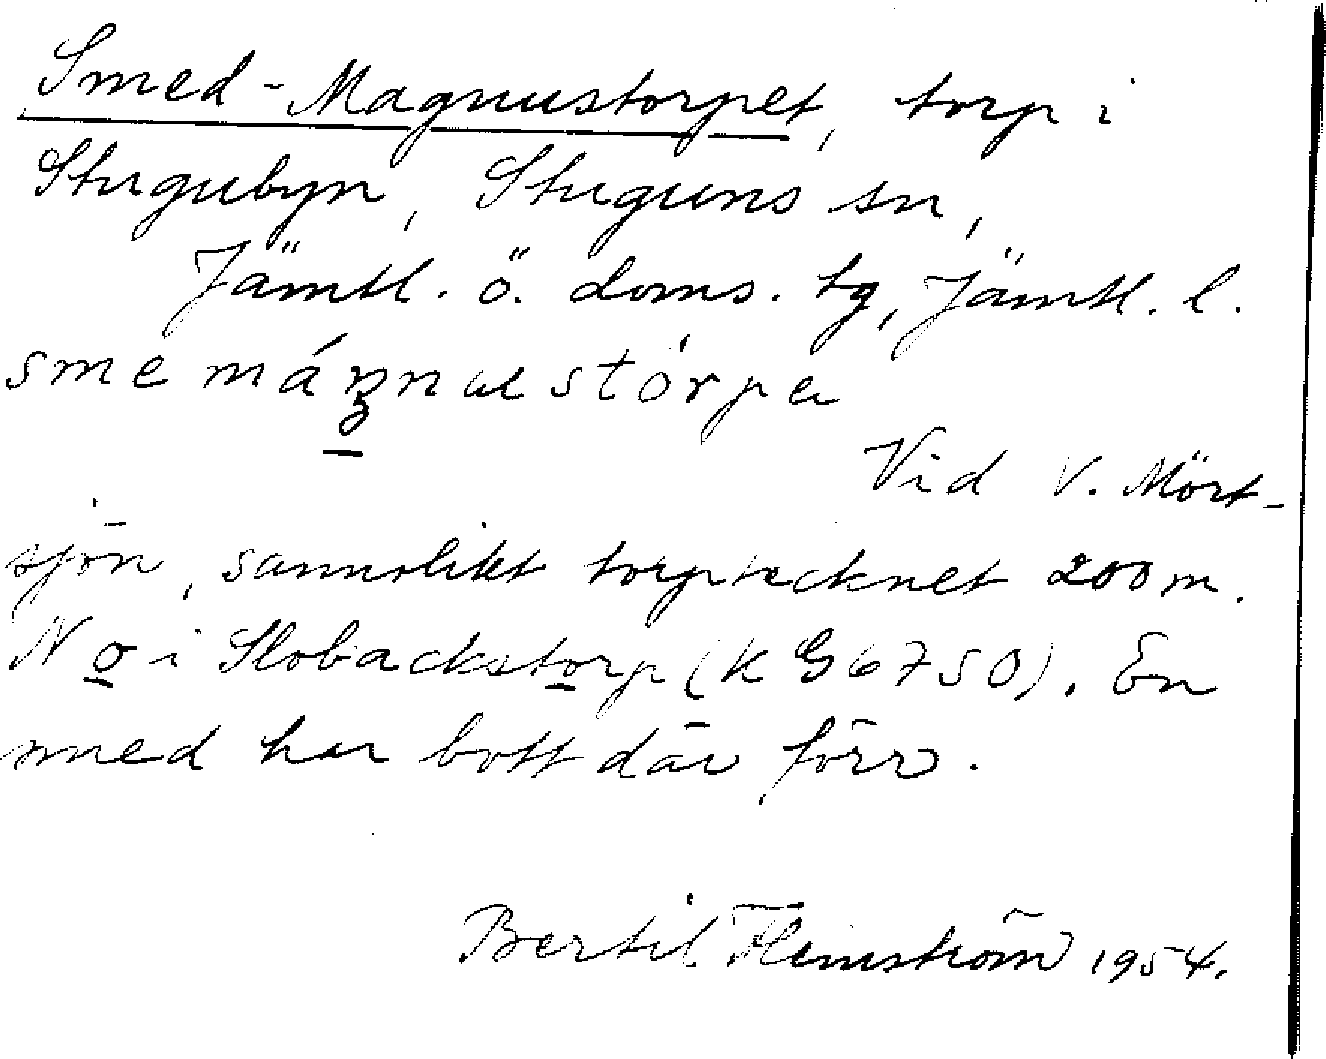 Smed-Magnustorpet, torp i
Stugubyn, Stuguns sn,
Jämtl. ö. doms. tg, Jämtl. l.
Vid V. Mört-
sjön, sannolikt torptecknet 200 m.
N o i Slobackstorp (k G6750). En
smed har bott där förr.
Bertil Flemström 1954.